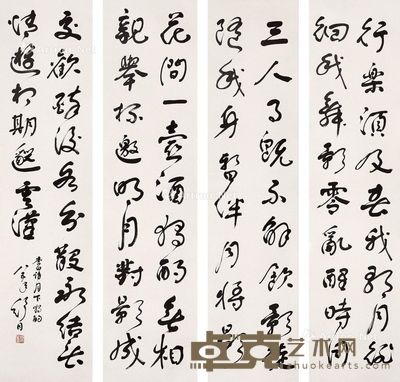 花間一壺酒獨酌無相
親舉杯邀明月對影成
三人月既不解飲影徒
隨我身暫伴月將影
行樂須及春我歌月徘
徊我舞影零亂醒時同
交歡醉後各分散永結無
情遊相期邈雲漢
李白詩月下獨酌
舒同
艺术网